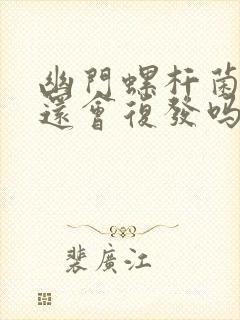 幽門螺杆菌
還會復發嗎
裴廣江